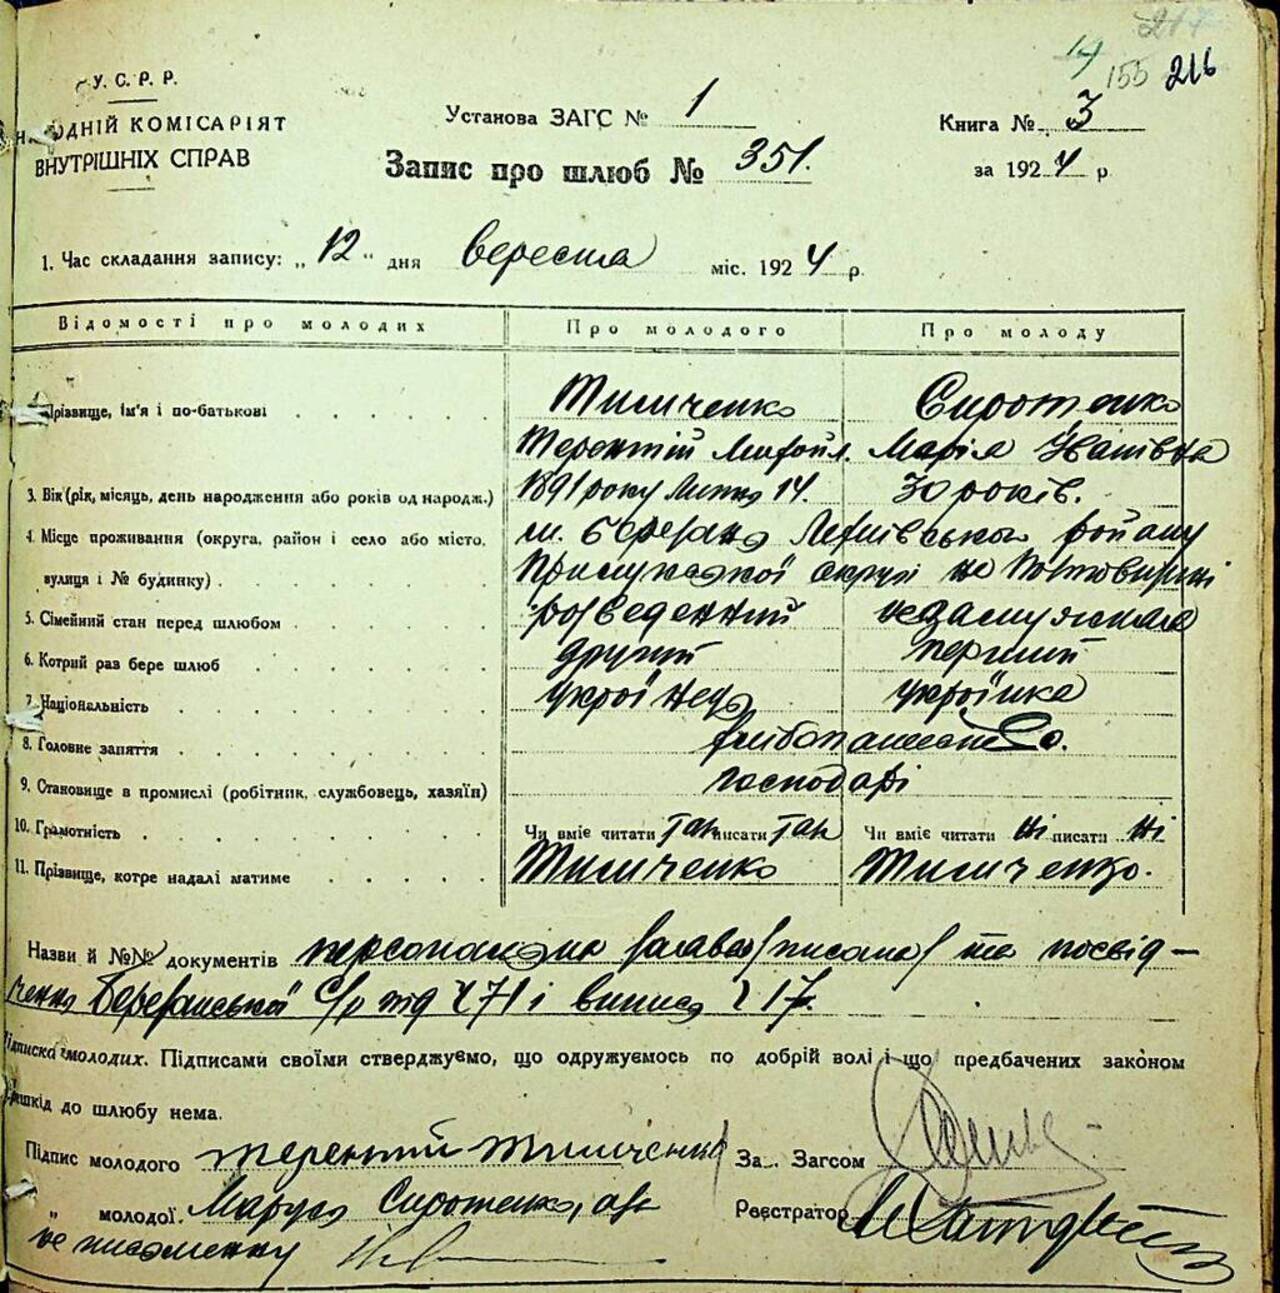 217
14 155 216
У. С. Р. Р.
НАРОДНІЙ КОМІСАРІЯТ
ВНУТРІШНІХ СПРАВ
Установа ЗАГС № 1
Книга № 3
Запис про шлюб № 351.
за 1924 р
1. Час складання запису: „12" дня вересня міс. 1924 р.
Відомості про молодих Про молодого Про молоду
Прізвище, ім'я і по-батькові . . . . . Тимченко Сиротенко
Терентій Михайл. Марія Іванівна
3. Вік (рік, місяць, день народження або років од народж.) 1891 року Липня 14. 30 років.
4. Місце проживання (округа, район і село або місто, м. Березань району
вулиця і № будинку) . . . . . . Прилуцької округи
5. Сімейний стан перед шлюбом . . . . . розведений незамужняя
6. Котрий раз бере шлюб . . . . . . другий перший
7. Національність . . . . . . . українець українка
8. Головне заняття . . . . . . . хліборобство.
9. Становище в промислі (робітник, службовець, хазяїн) господарі
10. Грамотність . . . . . . . Чи вміє читати так писати так Чи вміє читати ні писати ні
11. Прізвище, котре надалі матиме . . . . . Тимченко Тимченко.
Назви й №№ документів та посвід-
чення Березанської с/р під № 71 і випис № 17.
Підписка молодих. Підписами своїми стверджуємо, що одружуємось по добрій волі і що предбачених законом
перешкід до шлюбу нема.
Підпис молодого Терентій Тимченко За . Загсом
„ молодої. Маруся Сиротенко, Реєстратор
не письменну